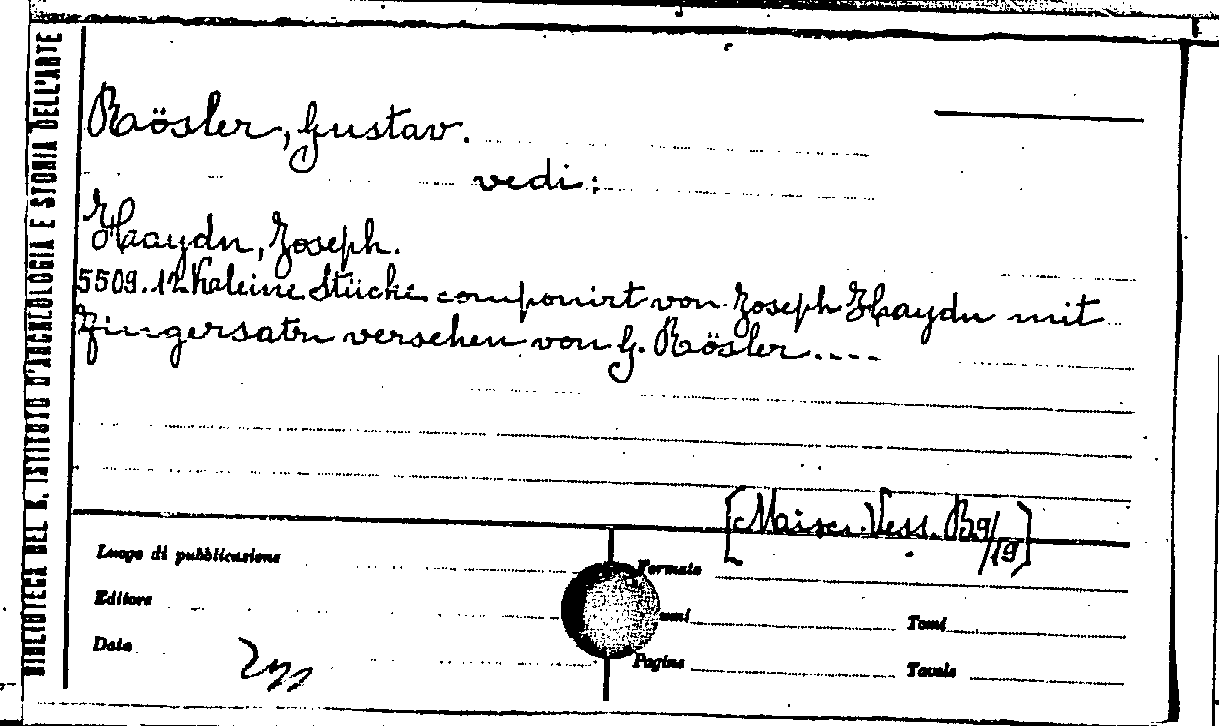 BIBLIOTECA DEL R. ISTITUTO D'ARCHEOLOGIA E STORIA DELL'ARTE
Rösler, Gustav.
vedi:
Haydn, Joseph.
5509. 12 Kleine Stücke componirt von Joseph Haydn mit
Fingersatz versehen von G. Rösler....
[Maisc. Vess. B 9/19]
Luogo di pubblicazione
Formato
Editore
Tomi
Data
Pagine
Tavole